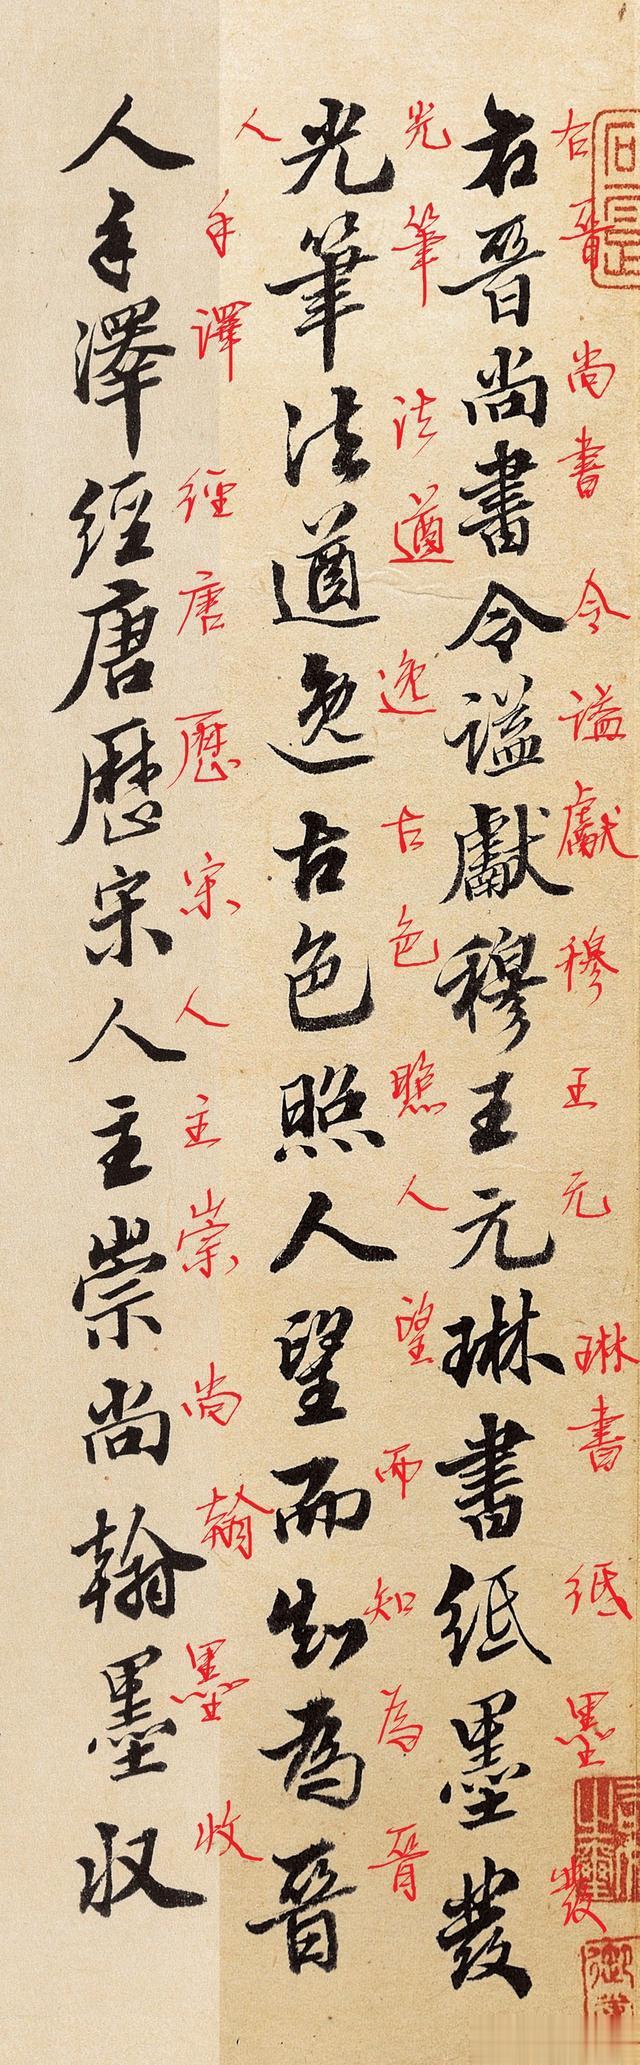 右晉尚書令謚獻穆王元琳書紙墨發
光筆法遒逸古色照人望而知為晉
人手澤經唐歷宋人主崇尚翰墨収
右晉尚書令謚獻穆王元琳書紙墨發
光筆法遒逸古色照人望而知為晉
人手澤經唐歷宋人主崇尚翰墨收